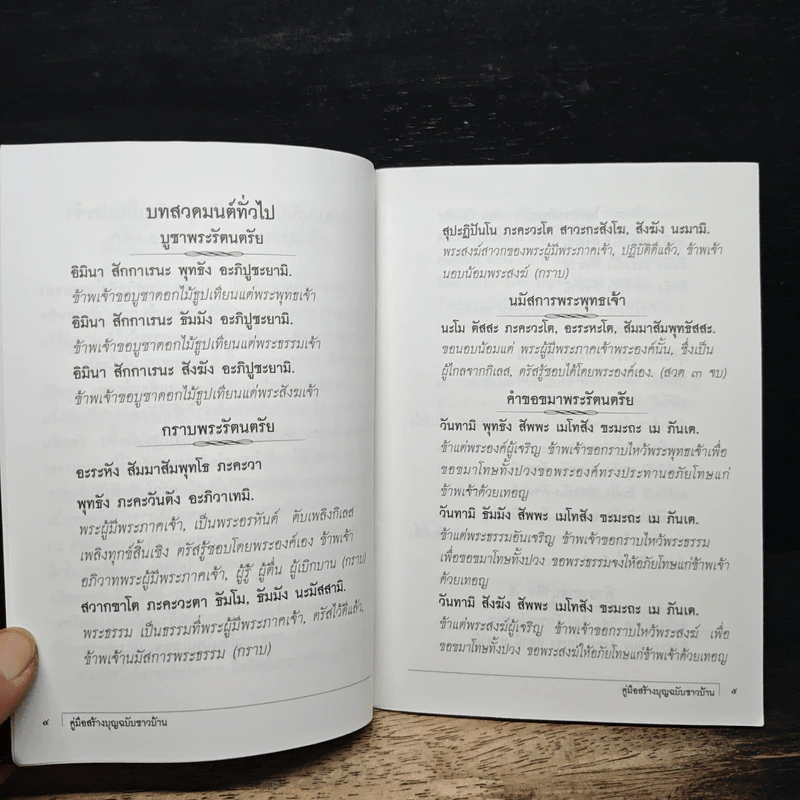 บทสวดมนต์ทั่วไป
บูชาพระรัตนตรัย
อิมินา สักกาเรนะ พุทธัง อะภิปูชะยามิ.
ข้าพเจ้าขอบูชาดอกไม้ธูปเทียนแด่พระพุทธเจ้า
อิมินา สักกาเรนะ ธัมมัง อะภิปูชะยามิ.
ข้าพเจ้าขอบูชาดอกไม้ธูปเทียนแด่พระธรรมเจ้า
อิมินา สักกาเรนะ สังฆัง อะภิปูชะยามิ.
ข้าพเจ้าขอบูชาดอกไม้ธูปเทียนแด่พระสังฆเจ้า
กราบพระรัตนตรัย
อะระหัง สัมมาสัมพุทโธ ภะคะวา
พุทธัง ภะคะวันตัง อะภิวาเทมิ.
พระผู้มีพระภาคเจ้า, เป็นพระอรหันต์ ดับเพลิงกิเลส
เพลิงทุกข์สิ้นเชิง ตรัสรู้ชอบโดยพระองค์เอง ข้าพเจ้า
อภิวาทพระผู้มีพระภาคเจ้า, ผู้รู้ ผู้ตื่น ผู้เบิกบาน (กราบ)
สวากขาโต ภะคะวะตา ธัมโม, ธัมมัง นะมัสสามิ.
พระธรรม เป็นธรรมที่พระผู้มีพระภาคเจ้า, ตรัสไว้ดีแล้ว,
ข้าพเจ้านมัสการพระธรรม (กราบ)
๔ คู่มือสร้างบุญฉบับชาวบ้าน
สุปะฏิปันโน ภะคะวะโต สาวะกะสังโฆ, สังฆัง นะมามิ.
พระสงฆ์สาวกของพระผู้มีพระภาคเจ้า, ปฏิบัติดีแล้ว, ข้าพเจ้า
นอบน้อมพระสงฆ์ (กราบ)
นมัสการพระพุทธเจ้า
นะโม ตัสสะ ภะคะวะโต, อะระหะโต, สัมมาสัมพุทธัสสะ.
ขอนอบน้อมแด่ พระผู้มีพระภาคเจ้าพระองค์นั้น, ซึ่งเป็น
ผู้ไกลจากกิเลส, ตรัสรู้ชอบได้โดยพระองค์เอง. (สวด ๓ จบ)
คำขอขมาพระรัตนตรัย
วันทามิ พุทธัง สัพพะ เมโทสัง ขะมะถะ เม ภันเต.
ข้าแต่พระองค์ผู้เจริญ ข้าพเจ้าขอกราบไหว้พระพุทธเจ้าเพื่อ
ขอขมาโทษทั้งปวงขอพระองค์ทรงประทานอภัยโทษแก่
ข้าพเจ้าด้วยเทอญ
วันทามิ ธัมมัง สัพพะ เมโทสัง ขะมะถะ เม ภันเต.
ข้าแต่พระธรรมอันเจริญ ข้าพเจ้าขอกราบไหว้พระธรรม
เพื่อขอขมาโทษทั้งปวง ขอพระธรรมจงให้อภัยโทษแก่ข้าพเจ้า
ด้วยเทอญ
วันทามิ สังฆัง สัพพะ เมโทสัง ขะมะถะ เม ภันเต.
ข้าแต่พระสงฆ์ผู้เจริญ ข้าพเจ้าขอกราบไหว้พระสงฆ์ เพื่อ
ขอขมาโทษทั้งปวง ขอพระสงฆ์ให้อภัยโทษแก่ข้าพเจ้าด้วยเทอญ
คู่มือสร้างบุญฉบับชาวบ้าน ๕